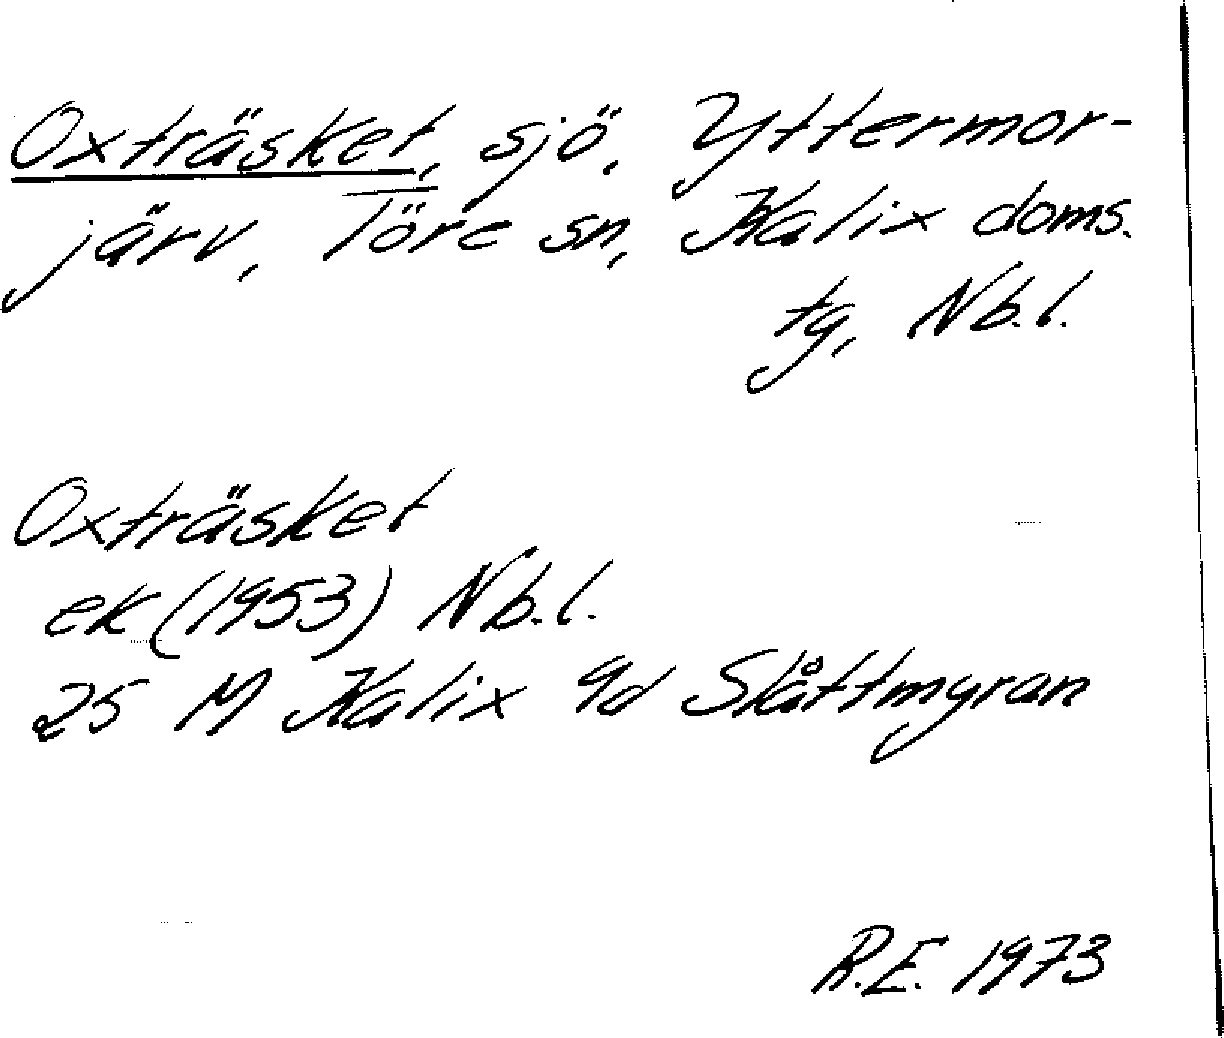 Oxträsket, sjö, Yttermor-
järv, Töre sn, Kalix doms.
tg, Nb.l.
Oxträsket
ek (1953) Nb.l.
25 M Kalix 9d Slåttmyran
R.E. 1973